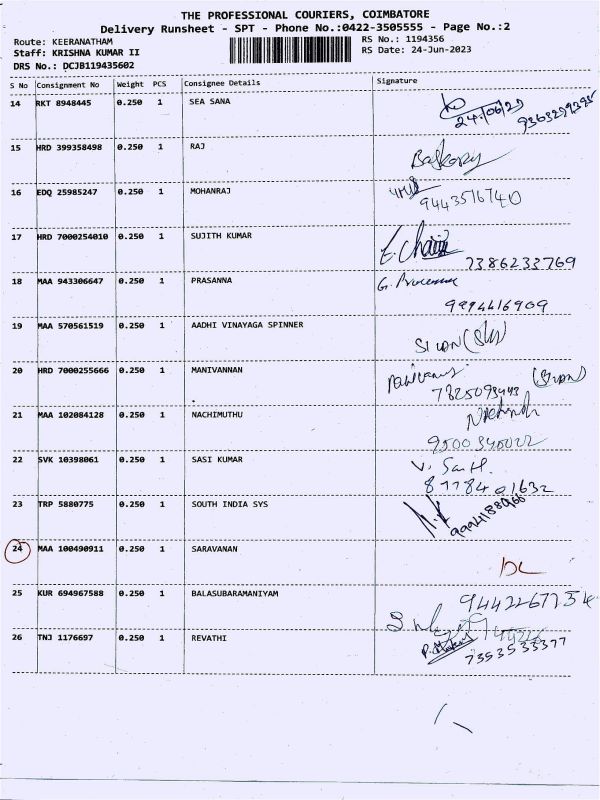 THE PROFESSIONAL COURIERS, COIMBATORE
Delivery Runsheet - SPT - Phone No.:0422-3505555 - Page No.:2
Route: KEERANATHAM
RS No.: 1194356
Staff: KRISHNA KUMAR II
RS Date: 24-Jun-2023
DRS No.: DCJB119435602
S No Consignment No Weight PCS Consignee Details Signature
14 RKT 8948445 0.250 1 SEA SANA
24/06/23 9363299395
15 HRD 399358498 0.250 1 RAJ
16 EDQ 25985247 0.250 1 MOHANRAJ
9443516740
17 HRD 7000254010 0.250 1 SUJITH KUMAR
7386233769
18 MAA 943306647 0.250 1 PRASANNA
9994416909
19 MAA 570561519 0.250 1 AADHI VINAYAGA SPINNER
20 HRD 7000255666 0.250 1 MANIVANNAN
21 MAA 102084128 0.250 1 NACHIMUTHU
22 SVK 10398061 0.250 1 SASI KUMAR
8778401632
23 TRP 5880775 0.250 1 SOUTH INDIA SYS
24 MAA 100490911 0.250 1 SARAVANAN
DL
25 KUR 694967588 0.250 1 BALASUBARAMANIYAM
26 TNJ 1176697 0.250 1 REVATHI
7353533377